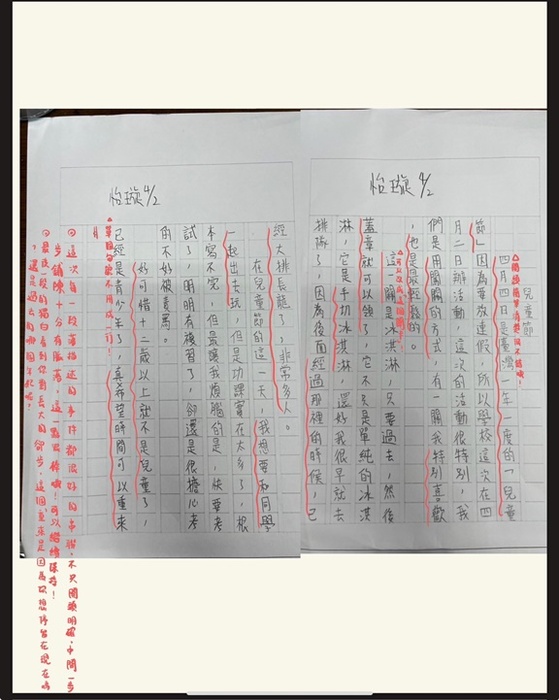 怡璇 4/2
兒童節
四月四日是臺灣一年一度的「兒童
節」因為要放連假，所以學校這次在四
月二日辦活動，這次的活動很特別，我
們是用闖關的方式，有一關我特別喜歡
，也是最輕鬆的。
這一關是冰淇淋，只要過去，然後
蓋章就可以領了，它不只是單純的冰淇
淋，它是手切冰淇淋，還好我很早就去
排隊了，因為後面經過那裡的時候，已
怡璇 4/2
經大排長龍了，非常多人。
在兒童節的這一天，我想要和同學
一起出去玩，但是功課實在太多了，根
本寫不完，但最讓我煩惱的是，快要考
試了，明明有複習了，卻還是很擔心考
的不好被責罵。
好可惜十二歲以上就不是兒童了，
已經是青少年了，真希望時間可以重來
。
這次自一段落描述的事件都很好的串聯，不只開頭明確，中間一步
步鋪陳十分有脈落，這一點很棒哦！可以繼續保持！
最後一段的獨白看到你對長大的
，還是過去的哪個年紀呢！